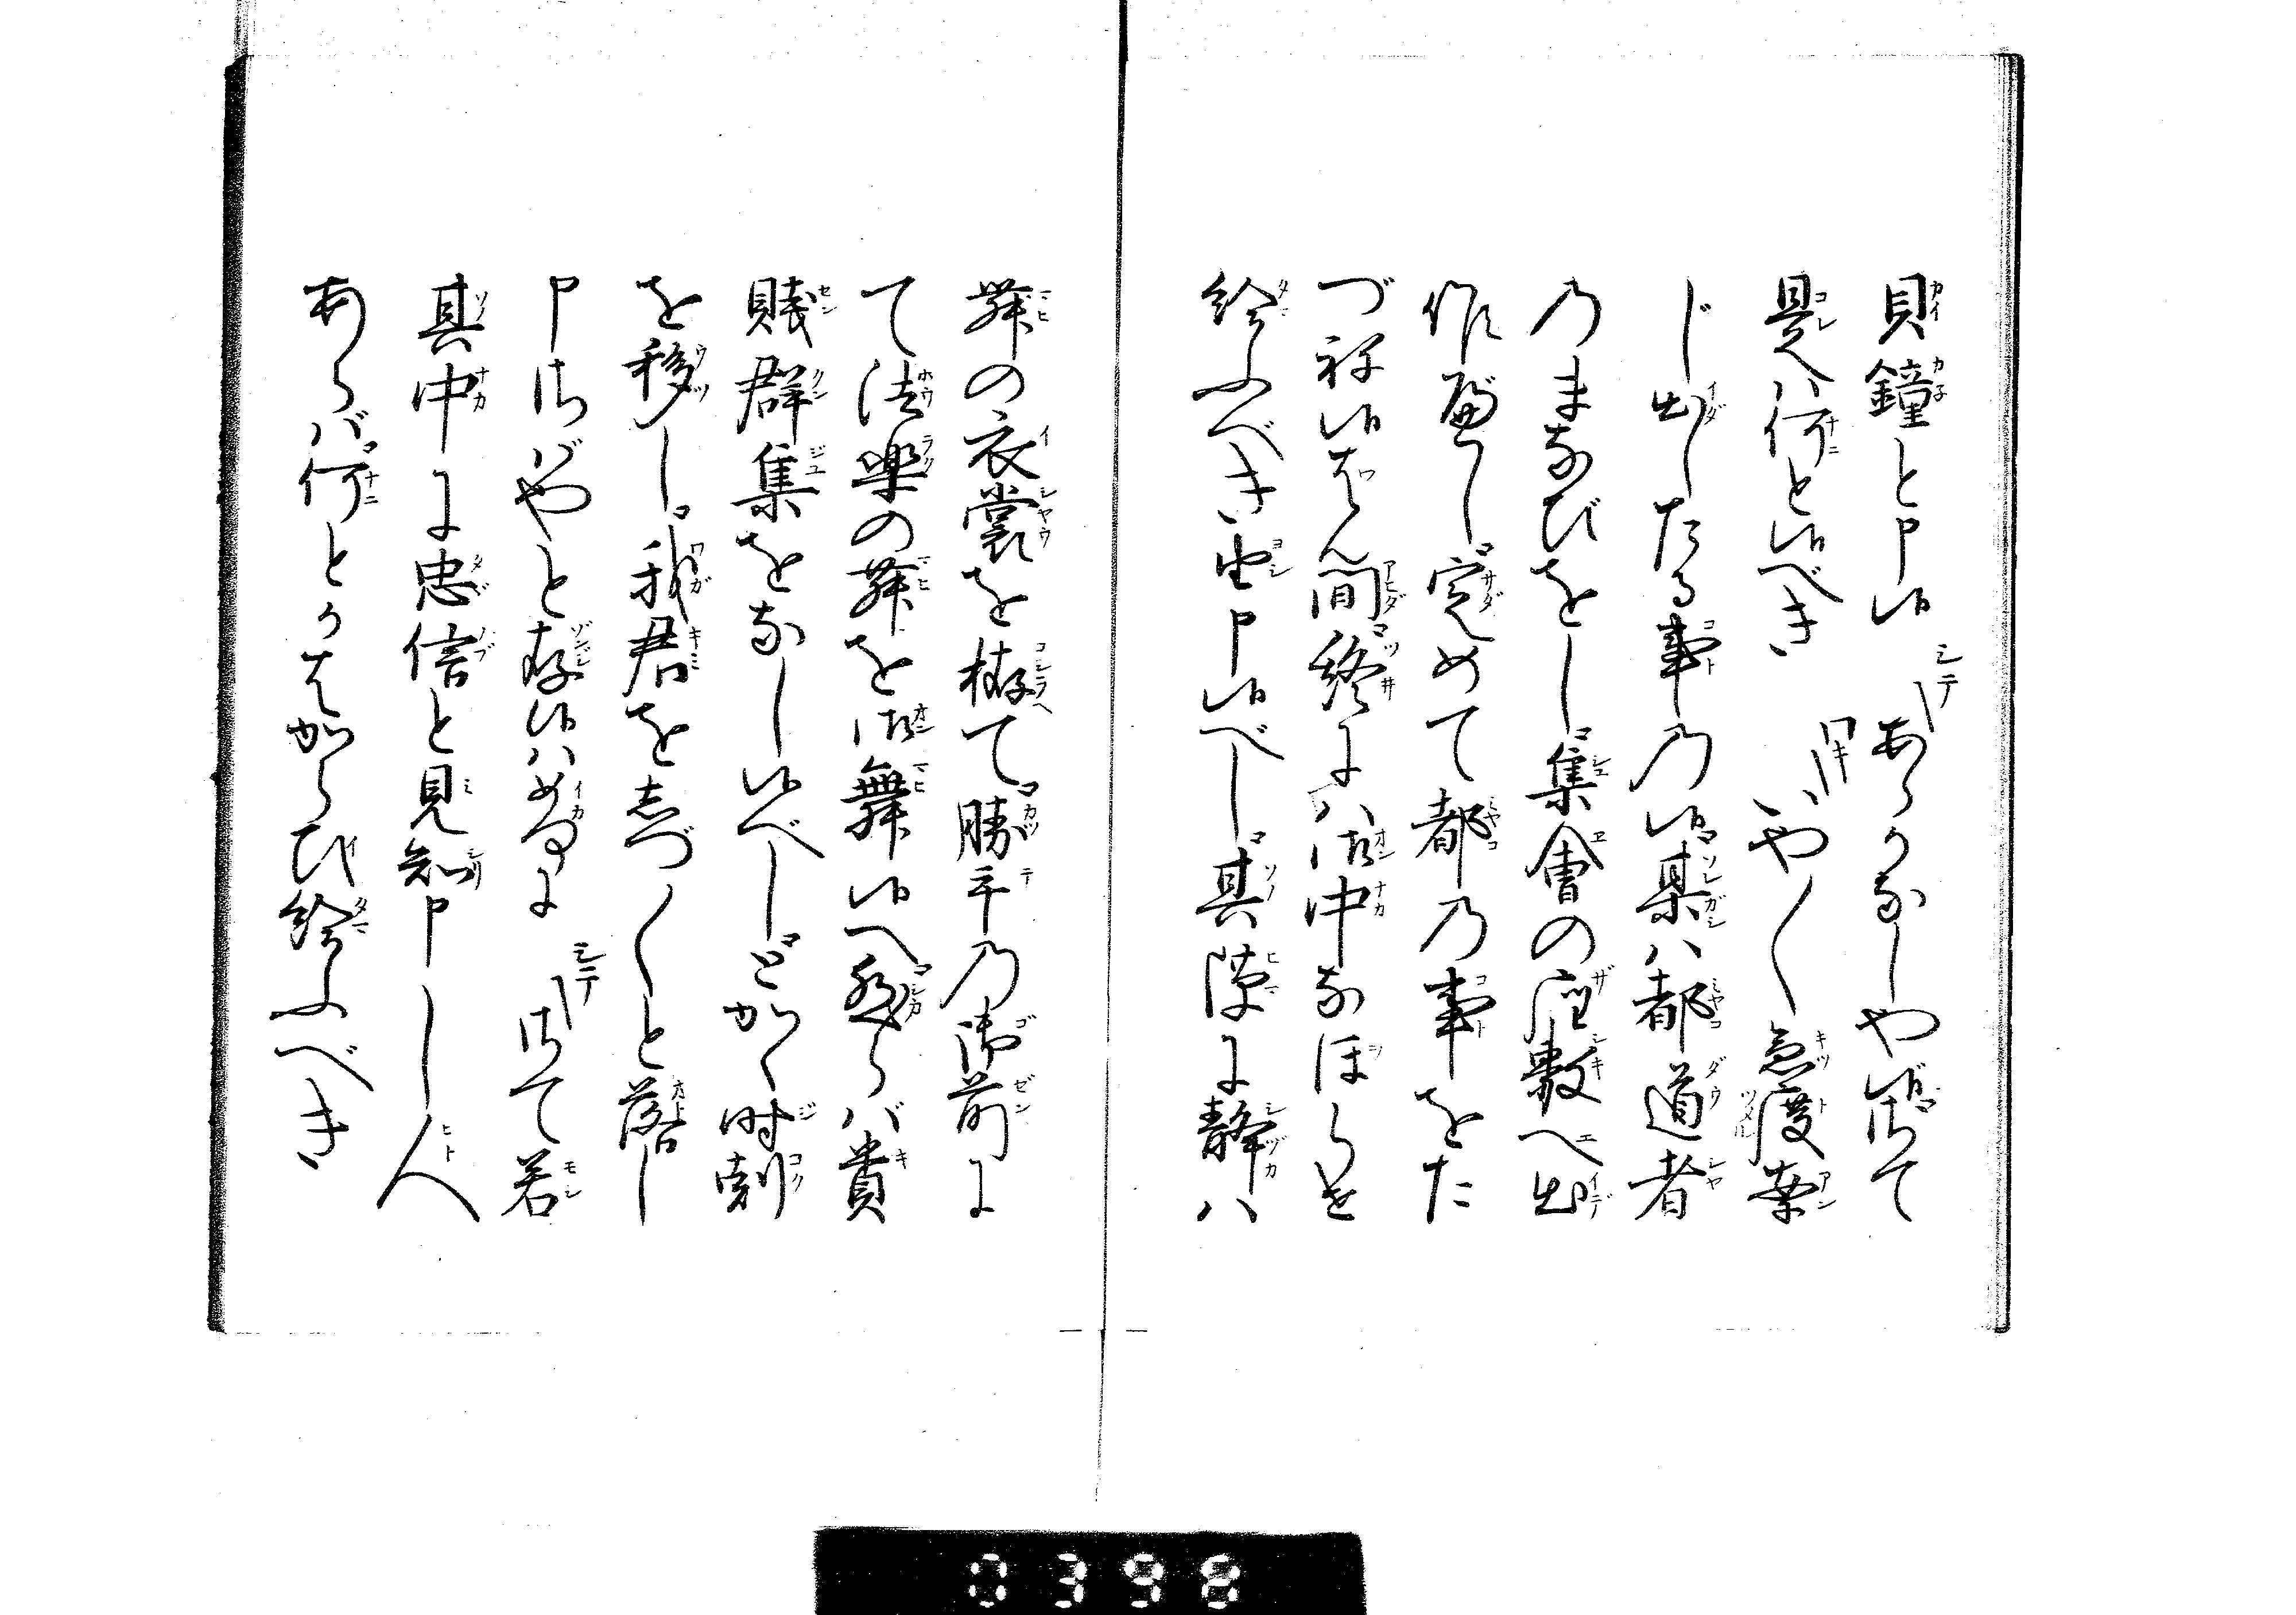 貝鐘と申候 シテ あらかなしや候さて
是ハ何と候べき ワキ いや〳〵急度案
じ出したる事の候某ハ都道者
のまなびをし集會の座敷へ出
作[] 定めて都乃事をた
づね候はん間終にハ御中なほらせ
給ふべき由申候べし其隙に静ハ
舞の衣裳を拵て勝手乃御前に
て法楽の舞を御舞候へ然らバ貴
賤群集をなし候べしとかく時刻
を移し我君を志づ〳〵と落し
申さバやと存候ハいかに シテ さて若
其中に忠信と見知申しし人
あらバ何とかはからひ給ふべき
0398